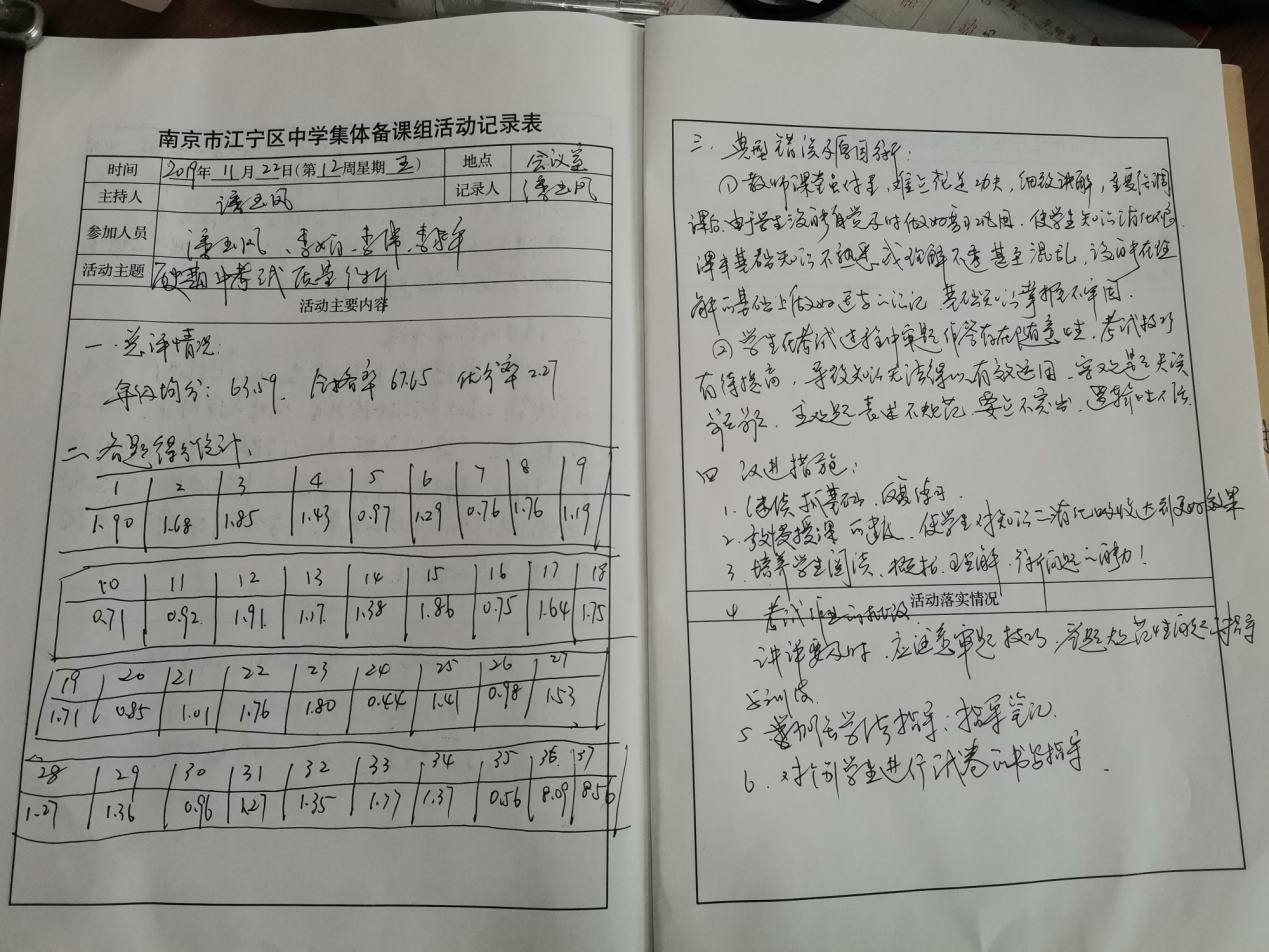 南京市江宁区中学集体备课组活动记录表
时间 2019年 11月 22日(第12周星期 五) 地点 会议室
主持人 记录人
参加人员
活动主题 历史期中考试 质量分析
活动主要内容
一. 总评情况:
年级均分: 63.59. 合格率 67.65 优分率 2.27
二. 各题得分统计.
1 2 3 4 5 6 7 8 9
1.90 1.68 1.85 1.43 0.97 1.29 0.76 1.76 1.19
10 11 12 13 14 15 16 17 18
0.71 0.92 1.91 1.17 1.38 1.86 0.75 1.64 1.75
19 20 21 22 23 24 25 26 27
1.71 0.85 1.01 1.76 1.80 0.44 1.41 0.98 1.53
28 29 30 31 32 33 34 35 36 37
1.27 1.36 0.96 1.27 1.35 1.77 1.37 0.56 8.09 8.56
三. 典型错误及原因分析:
① 教师课堂虽付出, 难点花足功夫, 细致讲解,
课后, 由于学生没能自觉及时做好复习巩固, 使学生知识消化不良.
课本基础知识不熟悉或理解不透甚至混乱, 没能在理
解的基础上做好适当的记忆, 基础知识掌握不牢固.
② 学生在考试过程中审题作答存在随意性, 考试技巧
有待提高, 导致知识无法得以有效运用, 客观题失误
主观题表述不规范, 要点不突出, 逻辑性不强.
四 改进措施:
1. 继续抓基础, 反复练习.
2. 放慢授课的速度, 使学生对知识的消化吸收达到更好效果
3. 培养学生阅读、概括、理解、分析问题的能力!
活动落实情况
4 考试
讲评要及时, 应注意审题技巧, 答题规范性问题的指导
与训练
5 加强学法指导: 指导笔记.
6. 对个别学生进行试卷的书写指导.